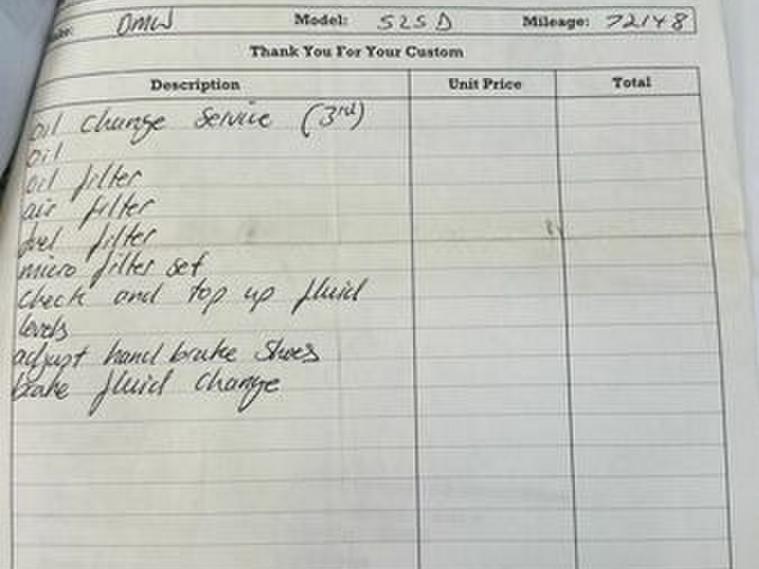 BMW Model: 525D Mileage: 72148
Thank You For Your Custom
Description Unit Price Total
oil change service (3rd)
oil
oil filter
air filter
fuel filter
micro filter set
check and top up fluid
levels
adjust hand brake shoes
brake fluid change